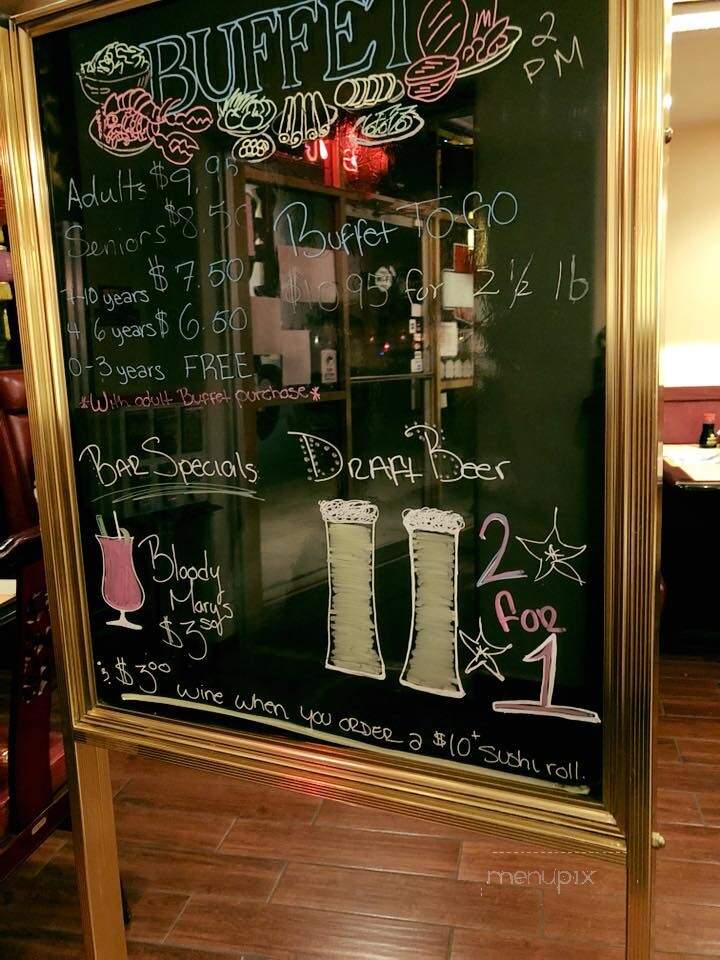 BUFFET
2 PM
Adults $9.95
Seniors $8.50
7-10 years $7.50
4-6 years $6.50
0-3 years FREE
*With adult Buffet purchase*
Buffet TO GO
$10.95 for 2 1/2 lb
BAR Specials
Bloody
Mary's
$3.50
DRAFT Beer
2
FOR
1
$3.00 wine when you ORDER a $10+ sushi roll.
menupix